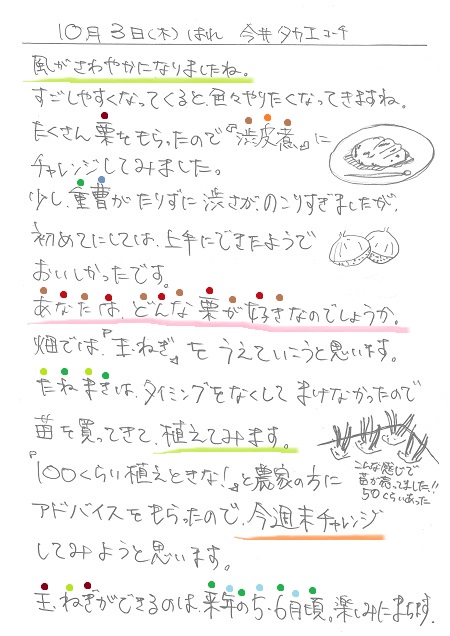 10月3日(木) はれ 今井タカエコーチ
風がさわやかになりましたね。
すごしやすくなってくると、色々やりたくなってきますね。
たくさん栗をもらったので『渋皮煮』に
チャレンジしてみました。
少し、重曹がたりずに渋さがのこりすぎましたが、
初めてにしては、上手にできたようで
おいしかったです。
あなたは、どんな栗が好きなのでしょうか。
畑では、『玉ねぎ』をうえていこうと思います。
たねまきは、タイミングをなくしてまけなかったので
苗を買ってきて、植えてみます。
こんな感じで
苗が売ってました!!
50くらいあった
『100くらい植えときな!』と農家の方に
アドバイスをもらったので、今週末チャレンジ
してみようと思います。
玉ねぎができるのは、来年の5・6月頃。楽しみにまちます。